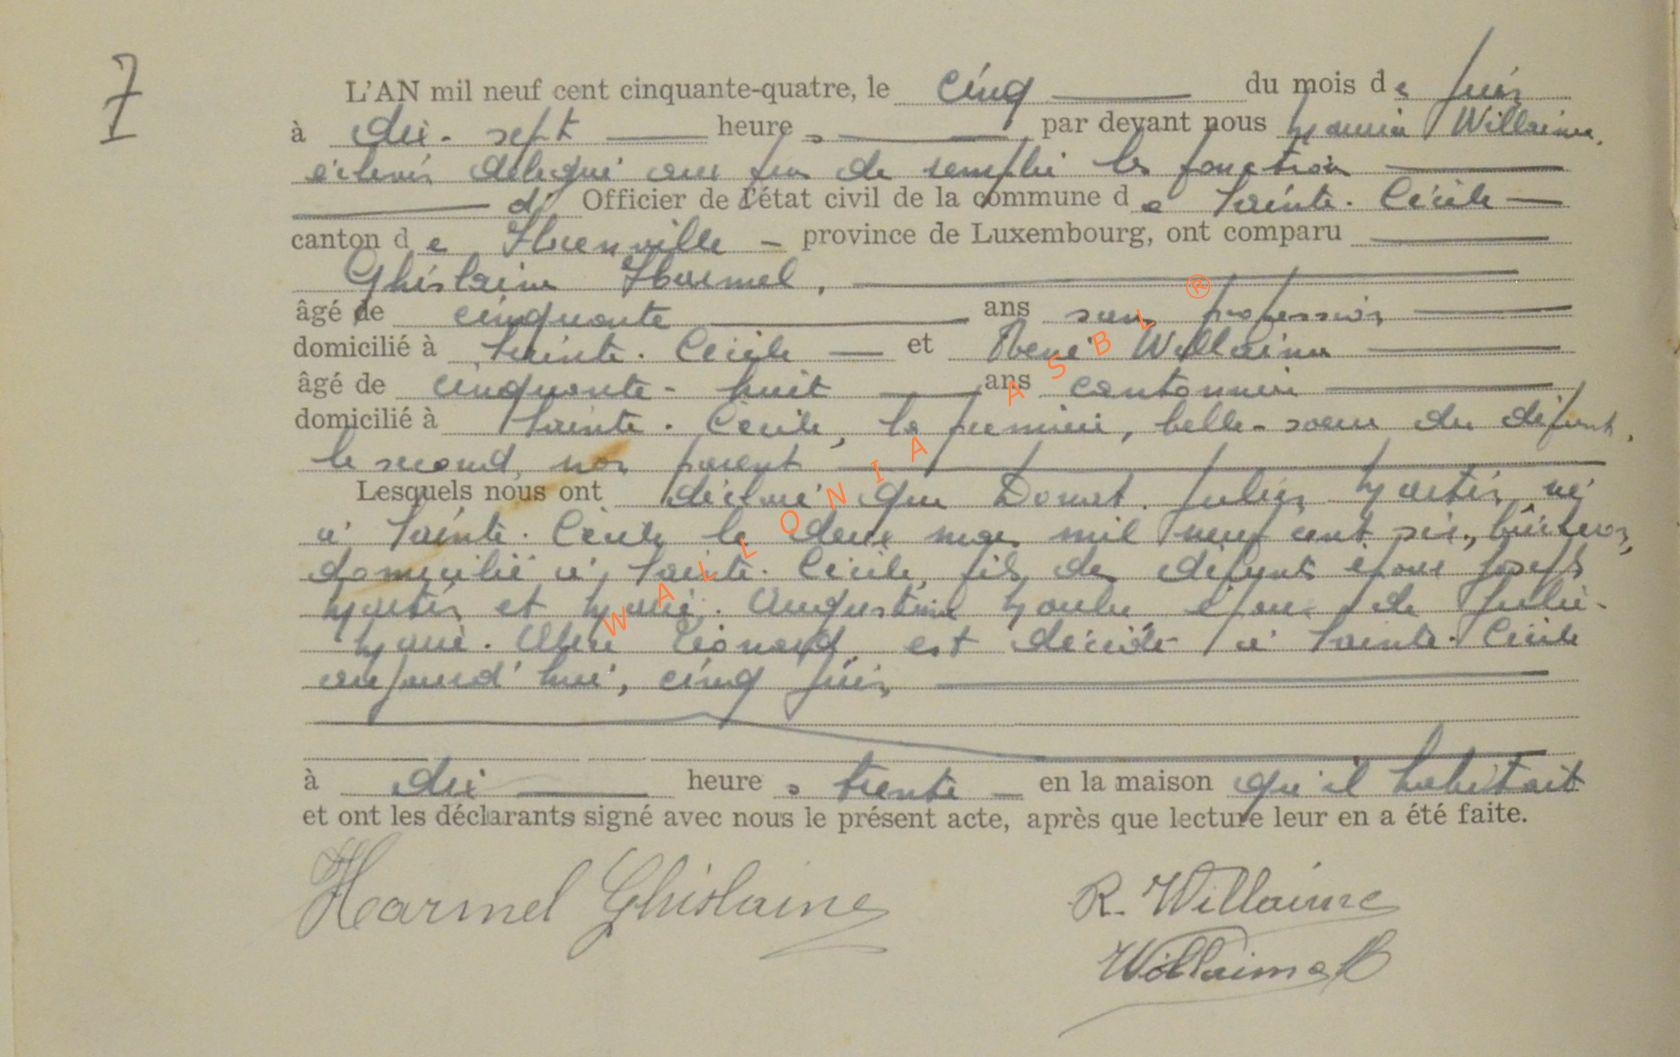 7
L'AN mil neuf cent cinquante-quatre, le cinq du mois de juin
à dix-sept heures par devant nous Maurice Willaime,
échevin délégué aux fins de remplir les fonctions
d' Officier de l'état civil de la commune de Sainte-Cécile
canton de Florenville province de Luxembourg, ont comparu
Ghislaine Harmel,
âgé de cinquante ans sans profession
domicilié à Sainte-Cécile et René Willaime
âgé de cinquante-huit ans cantonnier
domicilié à Sainte-Cécile, la première, belle-sœur du défunt,
le second, non parent
Lesquels nous ont déclaré que Donat-Julien Martin, né
à Sainte-Cécile le deux mars mil neuf cent six, bûcheron,
domicilié à Sainte-Cécile, fils des défunts époux Joseph
Martin et Marie-Augustine époux de Julie-
Marie- Léonard est décédé à Sainte-Cécile
aujourd'hui, cinq juin
à dix heures trente en la maison qu'il habitait
et ont les déclarants signé avec nous le présent acte, après que lecture leur en a été faite.
Harmel Ghislaine
R. Willaime
Willaime
WALLONIA ASBL ®